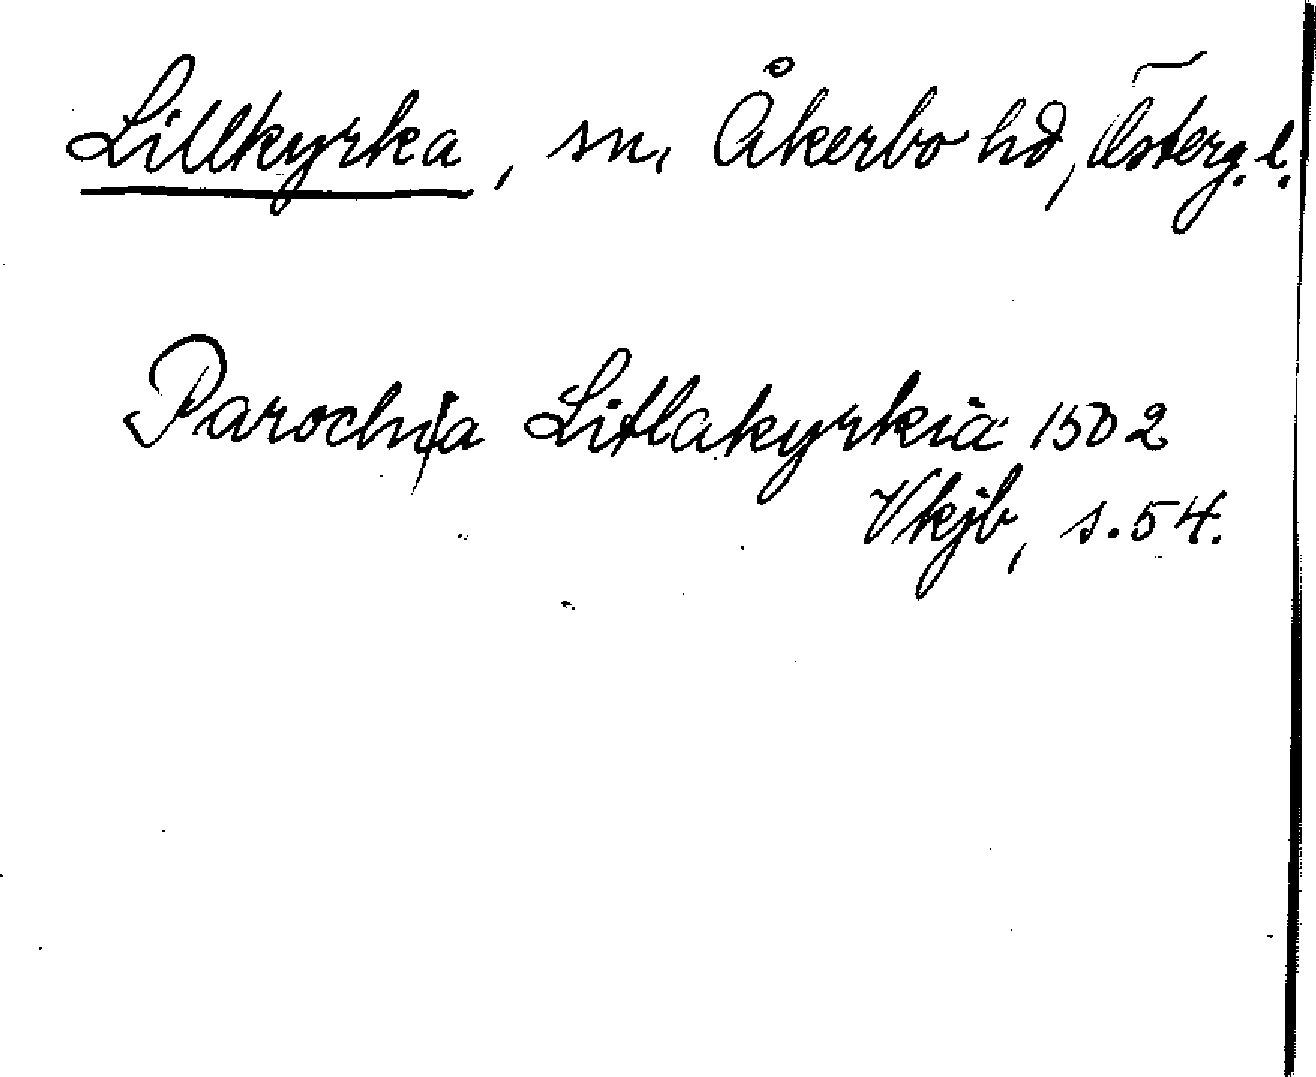 Lillkyrka, sn, Åkerbo hd, Österg. l.
Parochia Litlakyrkia 1502
Vkjb, s. 54.